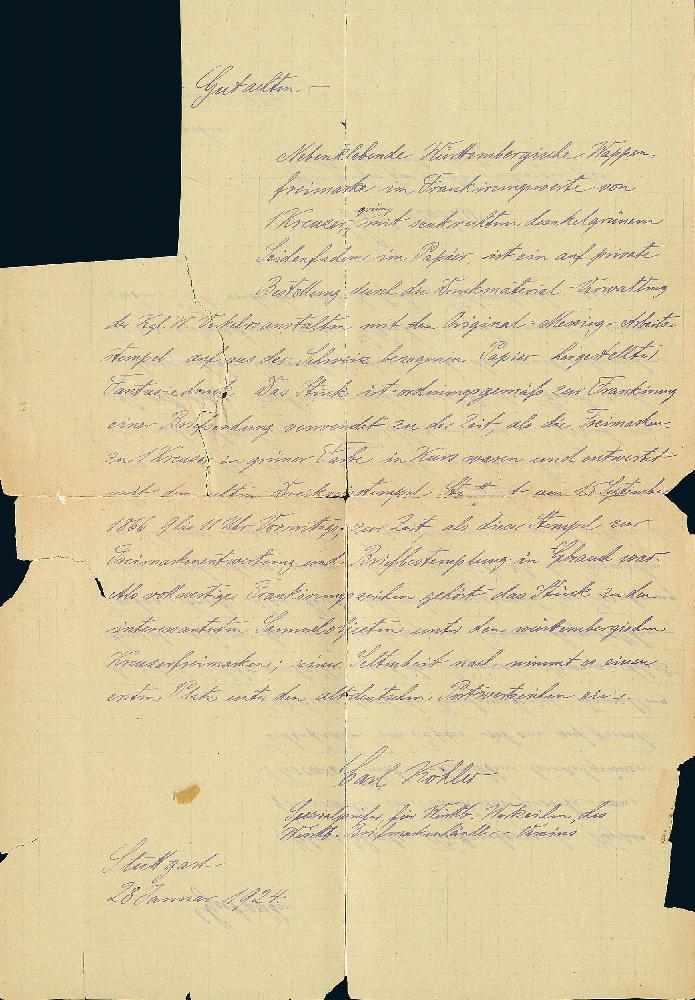 Gutachten. —
Nebenklebende Württembergische Wappen-
freimarke im Frankirungswerte von
1 Kreuzer, grün, mit senkrechtem dunkelgrünem
Seidenfaden im Papier ist ein auf private
Bestellung durch die Druckmaterial-Verwaltung
der Kgl. W. Verkehrsanstalten mit dem Original-Messing-Arbeits-
stempel auf aus der Schweiz bezogenem Papier hergestellter
Fantasiedruck. Das Stück ist ordnungsgemäß zur Frankirung
einer Briefsendung verwendet zu der Zeit, als die Freimarken
zu 1 Kreuzer in grüner Farbe in Kurs waren und entwertet
mit dem alten Dreikreisstempel am 25 September
1866 9 bis 11 Uhr Vormittags, zur Zeit als dieser Stempel zur
Freimarkenentwertung und Briefbestemplung in Gebrauch war.
Als vollwertiges Frankirungszeichen gehört das Stück zu den
interessantesten Sammelobjecten unter den württembergischen
Kreuzerfreimarken; seiner Seltenheit nach nimmt es einen
ersten Platz unter den altdeutschen Postwertzeichen ein.
Carl Köhler
Spezialprüfer für Württb. Wertzeichen des
Württb. Briefmarkenhändler-Vereins
Stuttgart
28 Januar 1924.